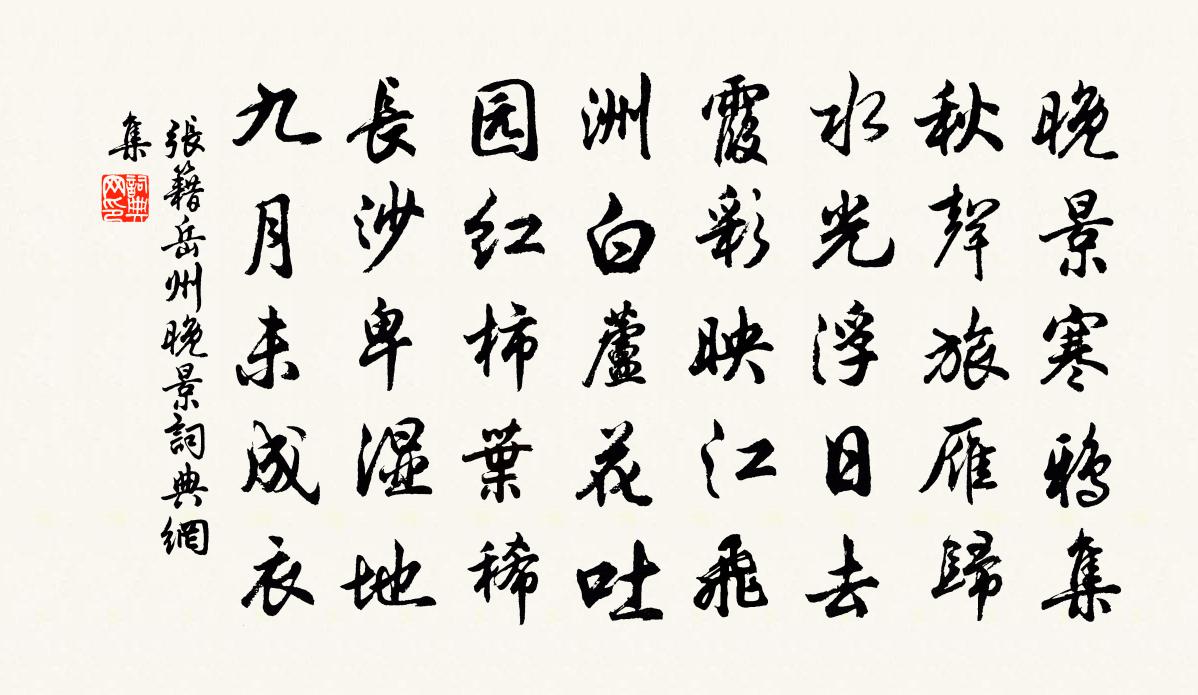 晚景寒鸦集
秋聲旅雁歸
水光浮日去
霞彩映江飛
洲白蘆花吐
园红柿葉稀
長沙卑濕地
九月未成衣
張籍岳州晚景詞典網
集
詞典网印